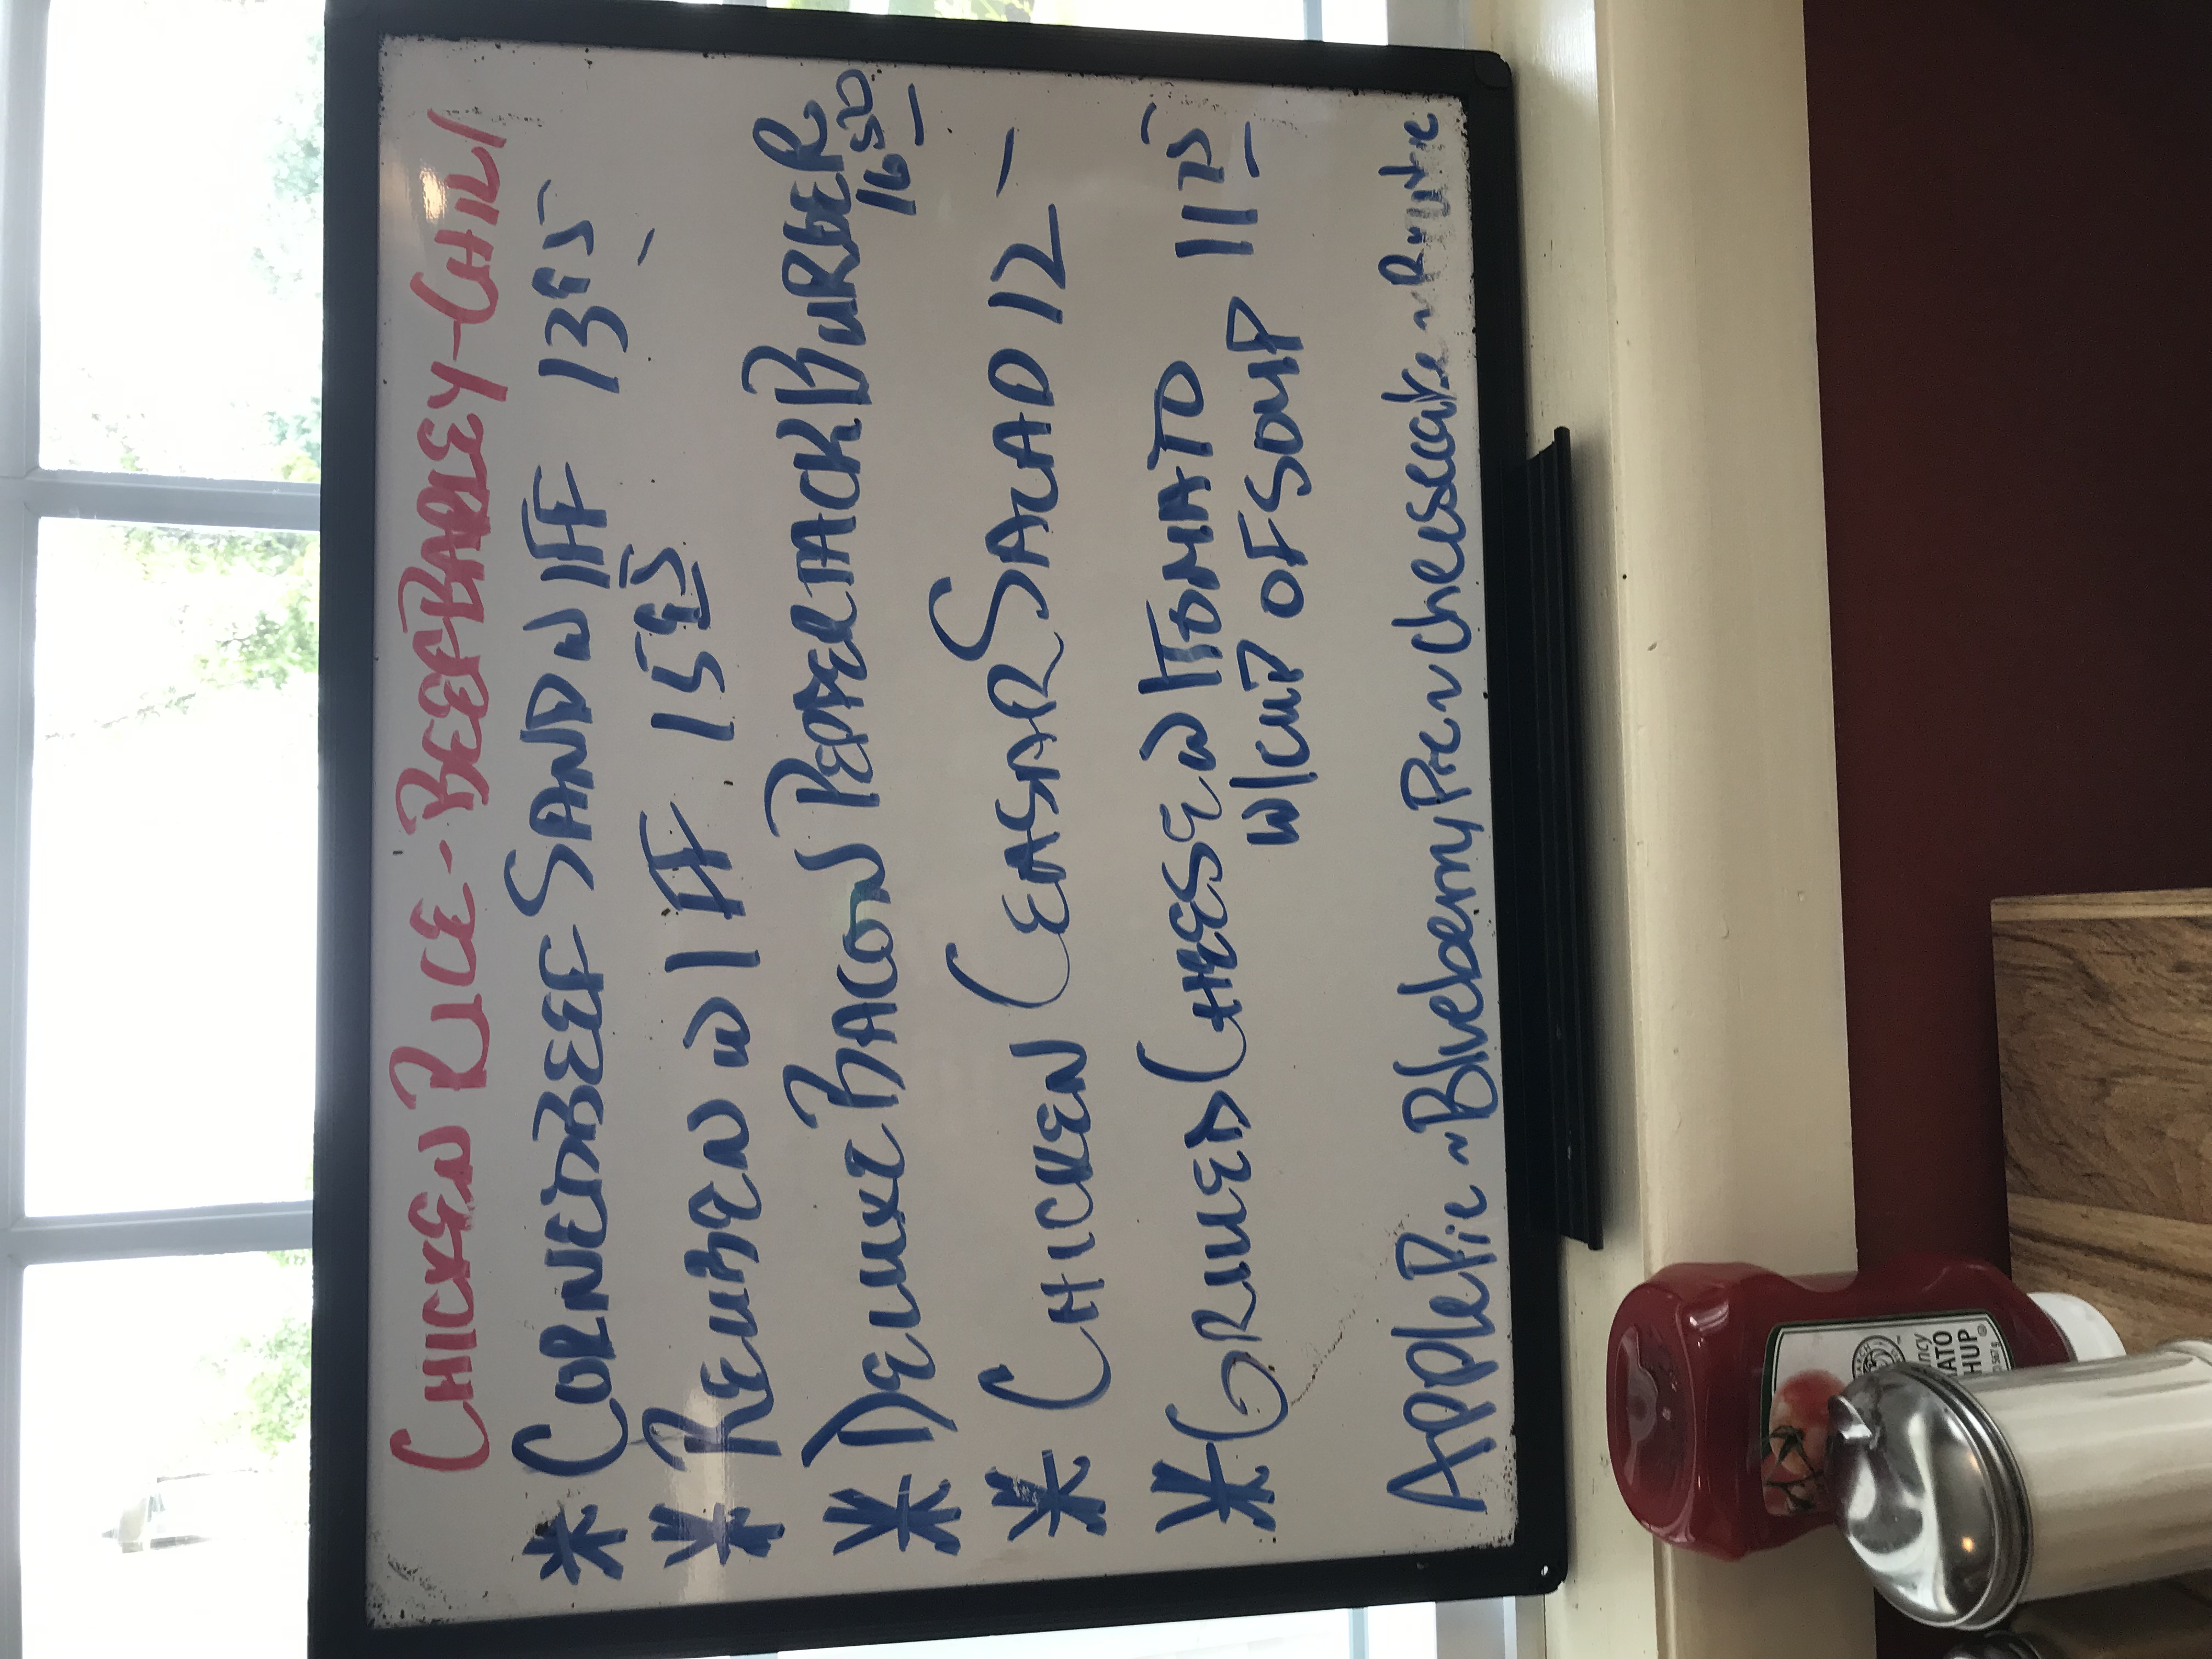 CHICKEN RICE - BEEF BARLEY - CHILI
* CORNED BEEF SANDW/FF 13 95
* REUBEN W/FF 15 95
* DELUXE BACON PEPPERJACK BURGER 16 50
* CHICKEN CEASAR SALAD 12 -
* GRILLED CHEESE W/TOMATO 11 75
W/CUP OF SOUP
Apple Pie ~ Blueberry Pie ~ Cheesecake ~ Brownie
ATO
HUP